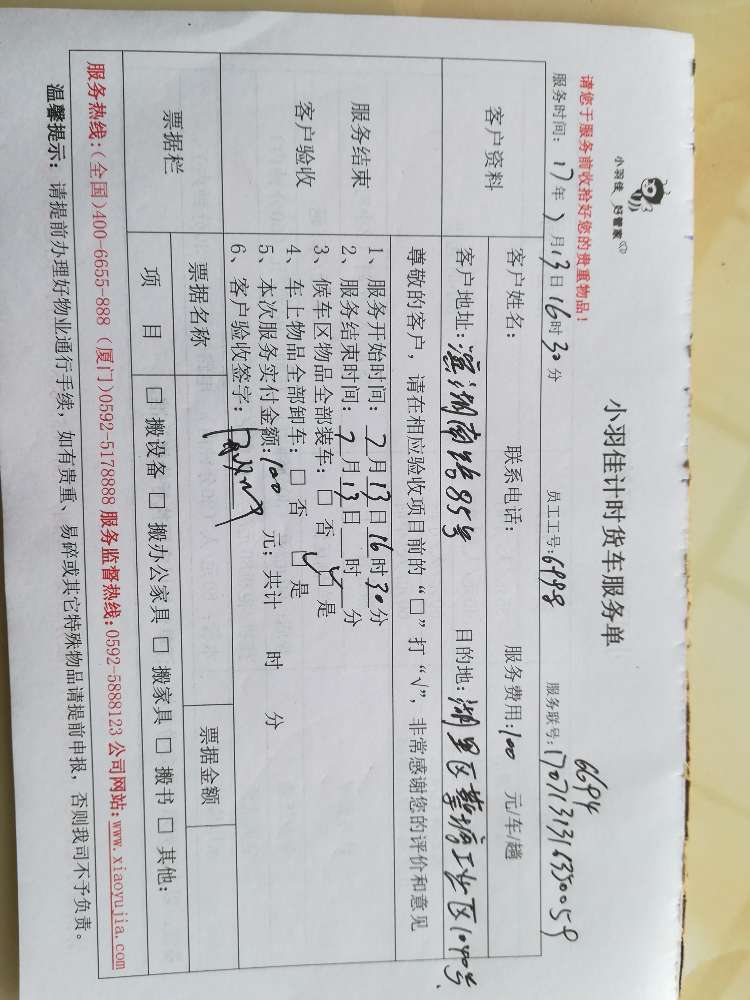 小羽佳 好管家
小羽佳计时货车服务单
请您于服务前收拾好您的贵重物品!
6694
服务时间: 17年7月13日16时30分 员工工号:6498 服务联号:
客户资料
客户姓名: 联系电话: 服务费用:100 元/车/趟
客户地址: 湖南路85号 目的地:湖里区 工业区1040号
尊敬的客户,请在相应验收项目前的“□”打“√”,非常感谢您的评价和意见
服务结束
客户验收
1、服务开始时间:7月13日16时30分
2、服务结束时间:7月13日 时 分
3、候车区物品全部装车:□ 否 □ 是
4、车上物品全部卸车:□ 否 □ 是
5、本次服务实付金额:100 元;共计 时 分
6、客户验收签字:
票据栏
票据名称 票据金额
项 目 □ 搬设备 □ 搬办公家具 □ 搬家具 □ 搬书 □ 其他:
服务热线:(全国)400-6655-888 (厦门)0592-5178888 服务监督热线:0592-5888123 公司网站:www.xiaoyujia.com
温馨提示:请提前办理好物业通行手续,如有贵重、易碎或其它特殊物品请提前申报,否则我司不予负责。